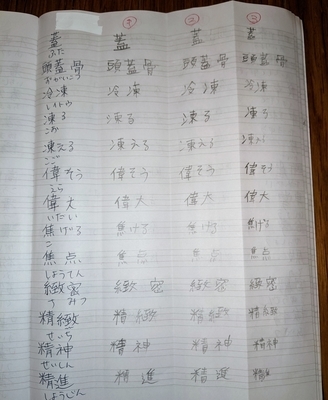 ① ② ③
蓋 蓋 蓋 蓋
ふた
頭蓋骨 頭蓋骨 頭蓋骨 頭蓋骨
ずがいこつ
冷凍 冷凍 冷凍 冷凍
レイトウ
凍る 凍る 凍る 凍る
こお
凍える 凍える 凍える 凍える
こご
偉そう 偉そう 偉そう 偉そう
えら
偉大 偉大 偉大 偉大
いだい
焦げる 焦げる 焦げる 焦げる
こ
焦点 焦点 焦点 焦点
しょうてん
緻密 緻密 緻密 緻密
精緻 精緻 精緻 精緻
せいち
精神 精神 精神 精神
せいしん
精進 精進 精進 精進
しょうじん